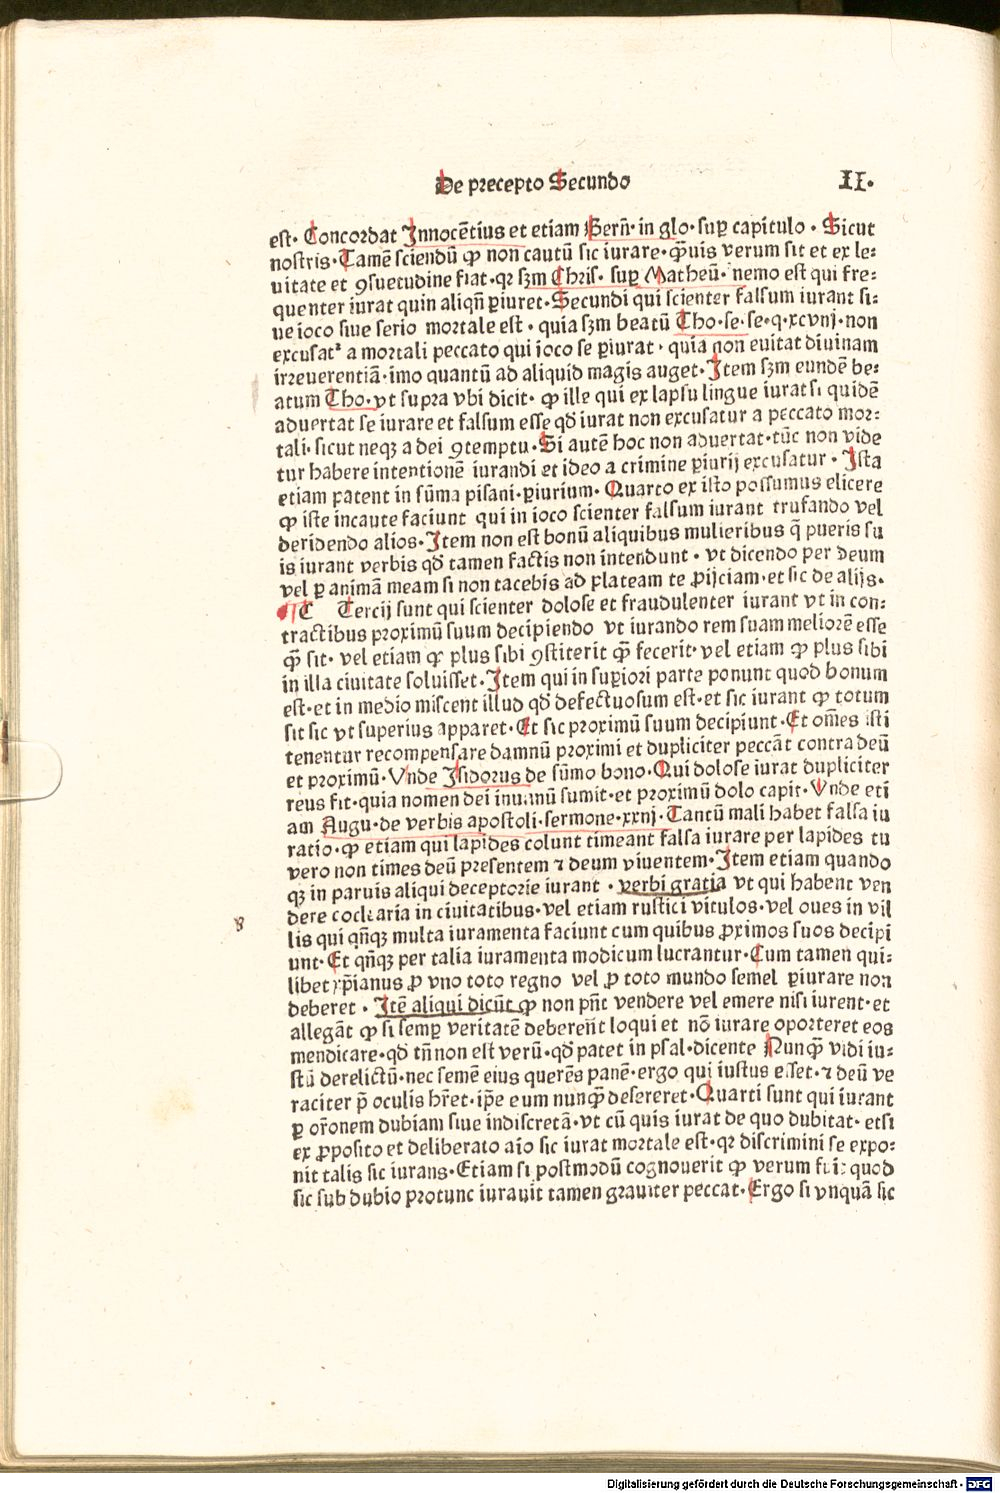 De precepto Secundo II.
est. Concordat Innocētius et etiam Berñ. in glo. suꝑ capitulo. Sicut
nostris. Tamē sciendū ꝙ non cautū sic iurare. q̄uis verum sit et ex le:
uitate et ꝯsuetudine fiat. qꝛ sꝫm Chris. suꝑ Matheū. nemo est qui fre:
quenter iurat quin aliqñ ꝑiuret. Secundi qui scienter falsum iurant si:
ue ioco siue serio mortale est. quia sꝫm beatū Tho. se. se. q. xcvnj. non
excusat² a mortali peccato qui ioco se ꝑiurat. quia non euitat diuinam
irreuerentiā. imo quantū ad aliquid magis auget. Item sꝫm eundē be:
atum Tho. vt supra vbi dicit. ꝙ ille qui ex lapsu lingue iurat si quidē
aduertat se iurare et falsum esse qđ iurat non excusatur a peccato mor:
tali. sicut neqꝫ a dei ꝯtemptu. Si autē hoc non aduertat. tūc non vide
tur habere intentionē iurandi et ideo a crimine ꝑiurij excusatur. Ista
etiam patent in sūma pisani. ꝑiurium. Quarto ex isto possumus elicere
ꝙ iste incaute faciunt qui in ioco scienter falsum iurant trufando vel
deridendo alios. Item non est bonū aliquibus mulieribus q̄ pueris su
is iurant verbis qđ tamen factis non intendunt. vt dicendo per deum
vel ꝑ animā meam si non tacebis ad plateam te ꝓijciam. et sic de alijs.
¶ C Tercij sunt qui scienter dolose et fraudulenter iurant vt in con:
tractibus proximū suum decipiendo vt iurando rem suam meliorē esse
q̄ sit. vel etiam ꝙ plus sibi ꝯstiterit q̄ fecerit. vel etiam ꝙ plus sibi
in illa ciuitate soluisset. Item qui in suꝑiori parte ponunt quod bonum
est. et in medio miscent illud qđ defectuosum est. et sic iurant ꝙ totum
sit sic vt superius apparet. Et sic proximū suum decipiunt. Et om̄es isti
tenentur recompensare damnū proximi et dupliciter peccāt contra deū
et proximū. Vnde Isidorus de sūmo bono. Qui dolose iurat dupliciter
reus fit. quia nomen dei inuanū sumit. et proximū dolo capit. Vnde eti
am Augu. de verbis apostoli. sermone. xxnj. Tantū mali habet falsa iu
ratio. ꝙ etiam qui lapides colunt timeant falsa iurare per lapides tu
vero non times deū presentem ⁊ deum viuentem. Item etiam quando
qꝫ in paruis aliqui deceptorie iurant. verbi gratia vt qui habent ven
dere coclearia in ciuitatibus. vel etiam rustici vitulos. vel oues in vil
lis qui qñqꝫ multa iuramenta faciunt cum quibus ꝓximos suos decipi
unt. Et qñqꝫ per talia iuramenta modicum lucrantur. Cum tamen qui:
libet xp̄ianus ꝓ vno toto regno vel ꝓ toto mundo semel ꝑiurare non
deberet. Itē aliqui dicūt ꝙ non pñt vendere vel emere nisi iurent. et
allegāt ꝙ si semꝑ veritatē deberent loqui et nō iurare oporteret eos
mendicare. qđ tñ non est verū. qđ patet in psal. dicente Nunq̄ vidi iu:
stū derelictū. nec semē eius querēs panē. ergo qui iustus esset. ⁊ deū ve
raciter p̄ oculis hr̄et. ip̄e eum nunq̄ desereret. Quarti sunt qui iurant
ꝑ or̄onem dubiam siue indiscretā. vt cū quis iurat de quo dubitat. etsi
ex ꝓposito et deliberato aīo sic iurat mortale est. qꝛ discrimini se expo:
nit talis sic iurans. Etiam si postmodū cognouerit ꝙ verum fuit quod
sic sub dubio protunc iurauit tamen grauiter peccat. Ergo si vnquā sic
Digitalisierung gefördert durch die Deutsche Forschungsgemeinschaft · DFG